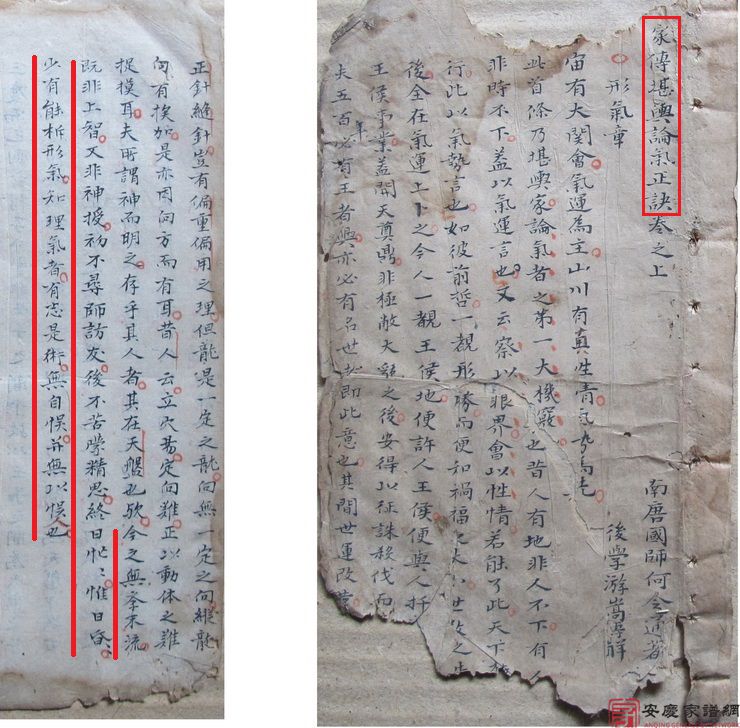 家傳堪輿論氣正訣卷之上
南唐國師何令通著
形氣章
後學游嵩學解
宙有大関會氣運為主山川有真性情氣势為先
此首條乃堪輿家論氣者之第一大機竅也昔人有地非人不下有人
非時不下蓋以氣運言也又云察以眼界會以性情若能了此天下
行此以氣勢言也如彼前哲一覩形勝而便知禍福之大小世代之
後全在氣運上卜之今人一覩王侯地便許人王侯便與人扦
王侯事業蓋開天奠鼎非極敝大亂之後安得以征誅移伐而
夫五百年必有王者興亦必有名世者即此意也其間世運改革
正針縫針豈有偏重偏用之理但龍是一定之龍向無一定之向縱龍
向有挨加是亦因向方而有耳昔人云立穴易定向難正以動体之难
捉摸耳夫所謂神而明之存乎其人者其在天盤也歟今之無本流
既非上智又非神授初不尋師訪友後不苦學精思終日忙〻惟日昏
少有能析形氣知理氣者有志是術無自悞并無以悞人也
安慶家譜網